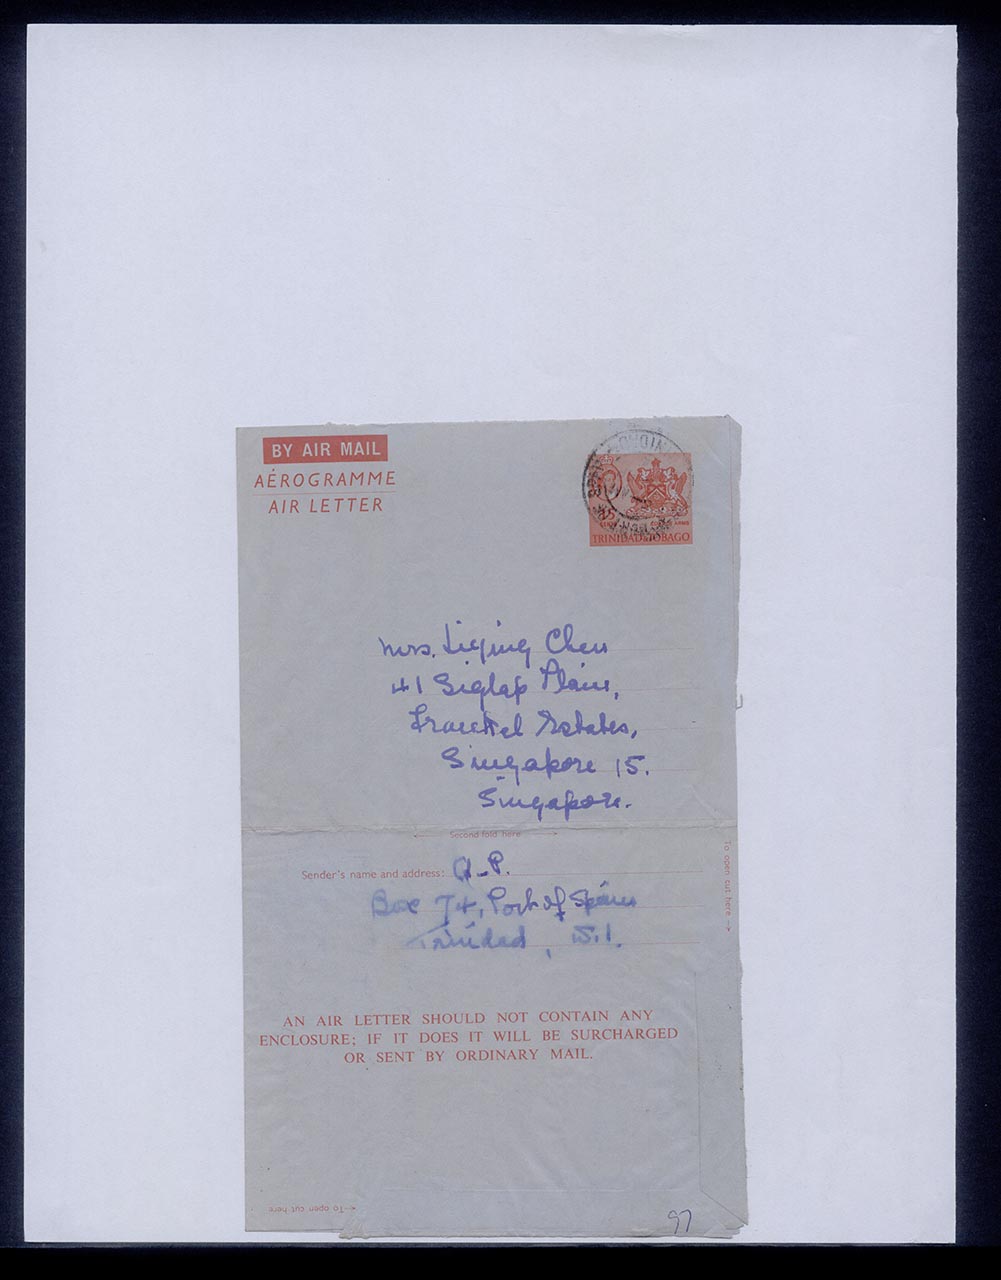 BY AIR MAIL
AÉROGRAMME
AIR LETTER
15
TRINIDAD & TOBAGO
Mrs. Liqing Chen
41 Siglap Plain,
Frankel Estates,
Singapore 15.
Singapore.
Second fold here
Sender's name and address: Q.P.
Box 74, Port of Spain
Trinidad, W.I.
To open cut here
AN AIR LETTER SHOULD NOT CONTAIN ANY
ENCLOSURE; IF IT DOES IT WILL BE SURCHARGED
OR SENT BY ORDINARY MAIL.
To open cut here
97